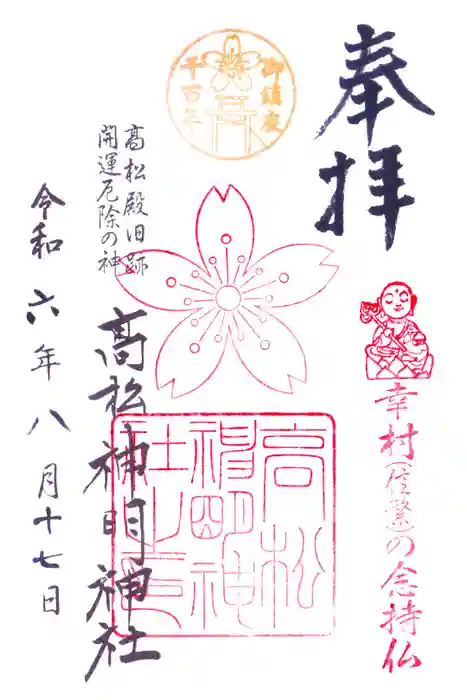 奉拝
幸村(信繁)の念持仏
御鎮座
千百年
高松神明神社
高松殿旧跡
開運厄除の神
高松神明神社
令和六年八月十七日